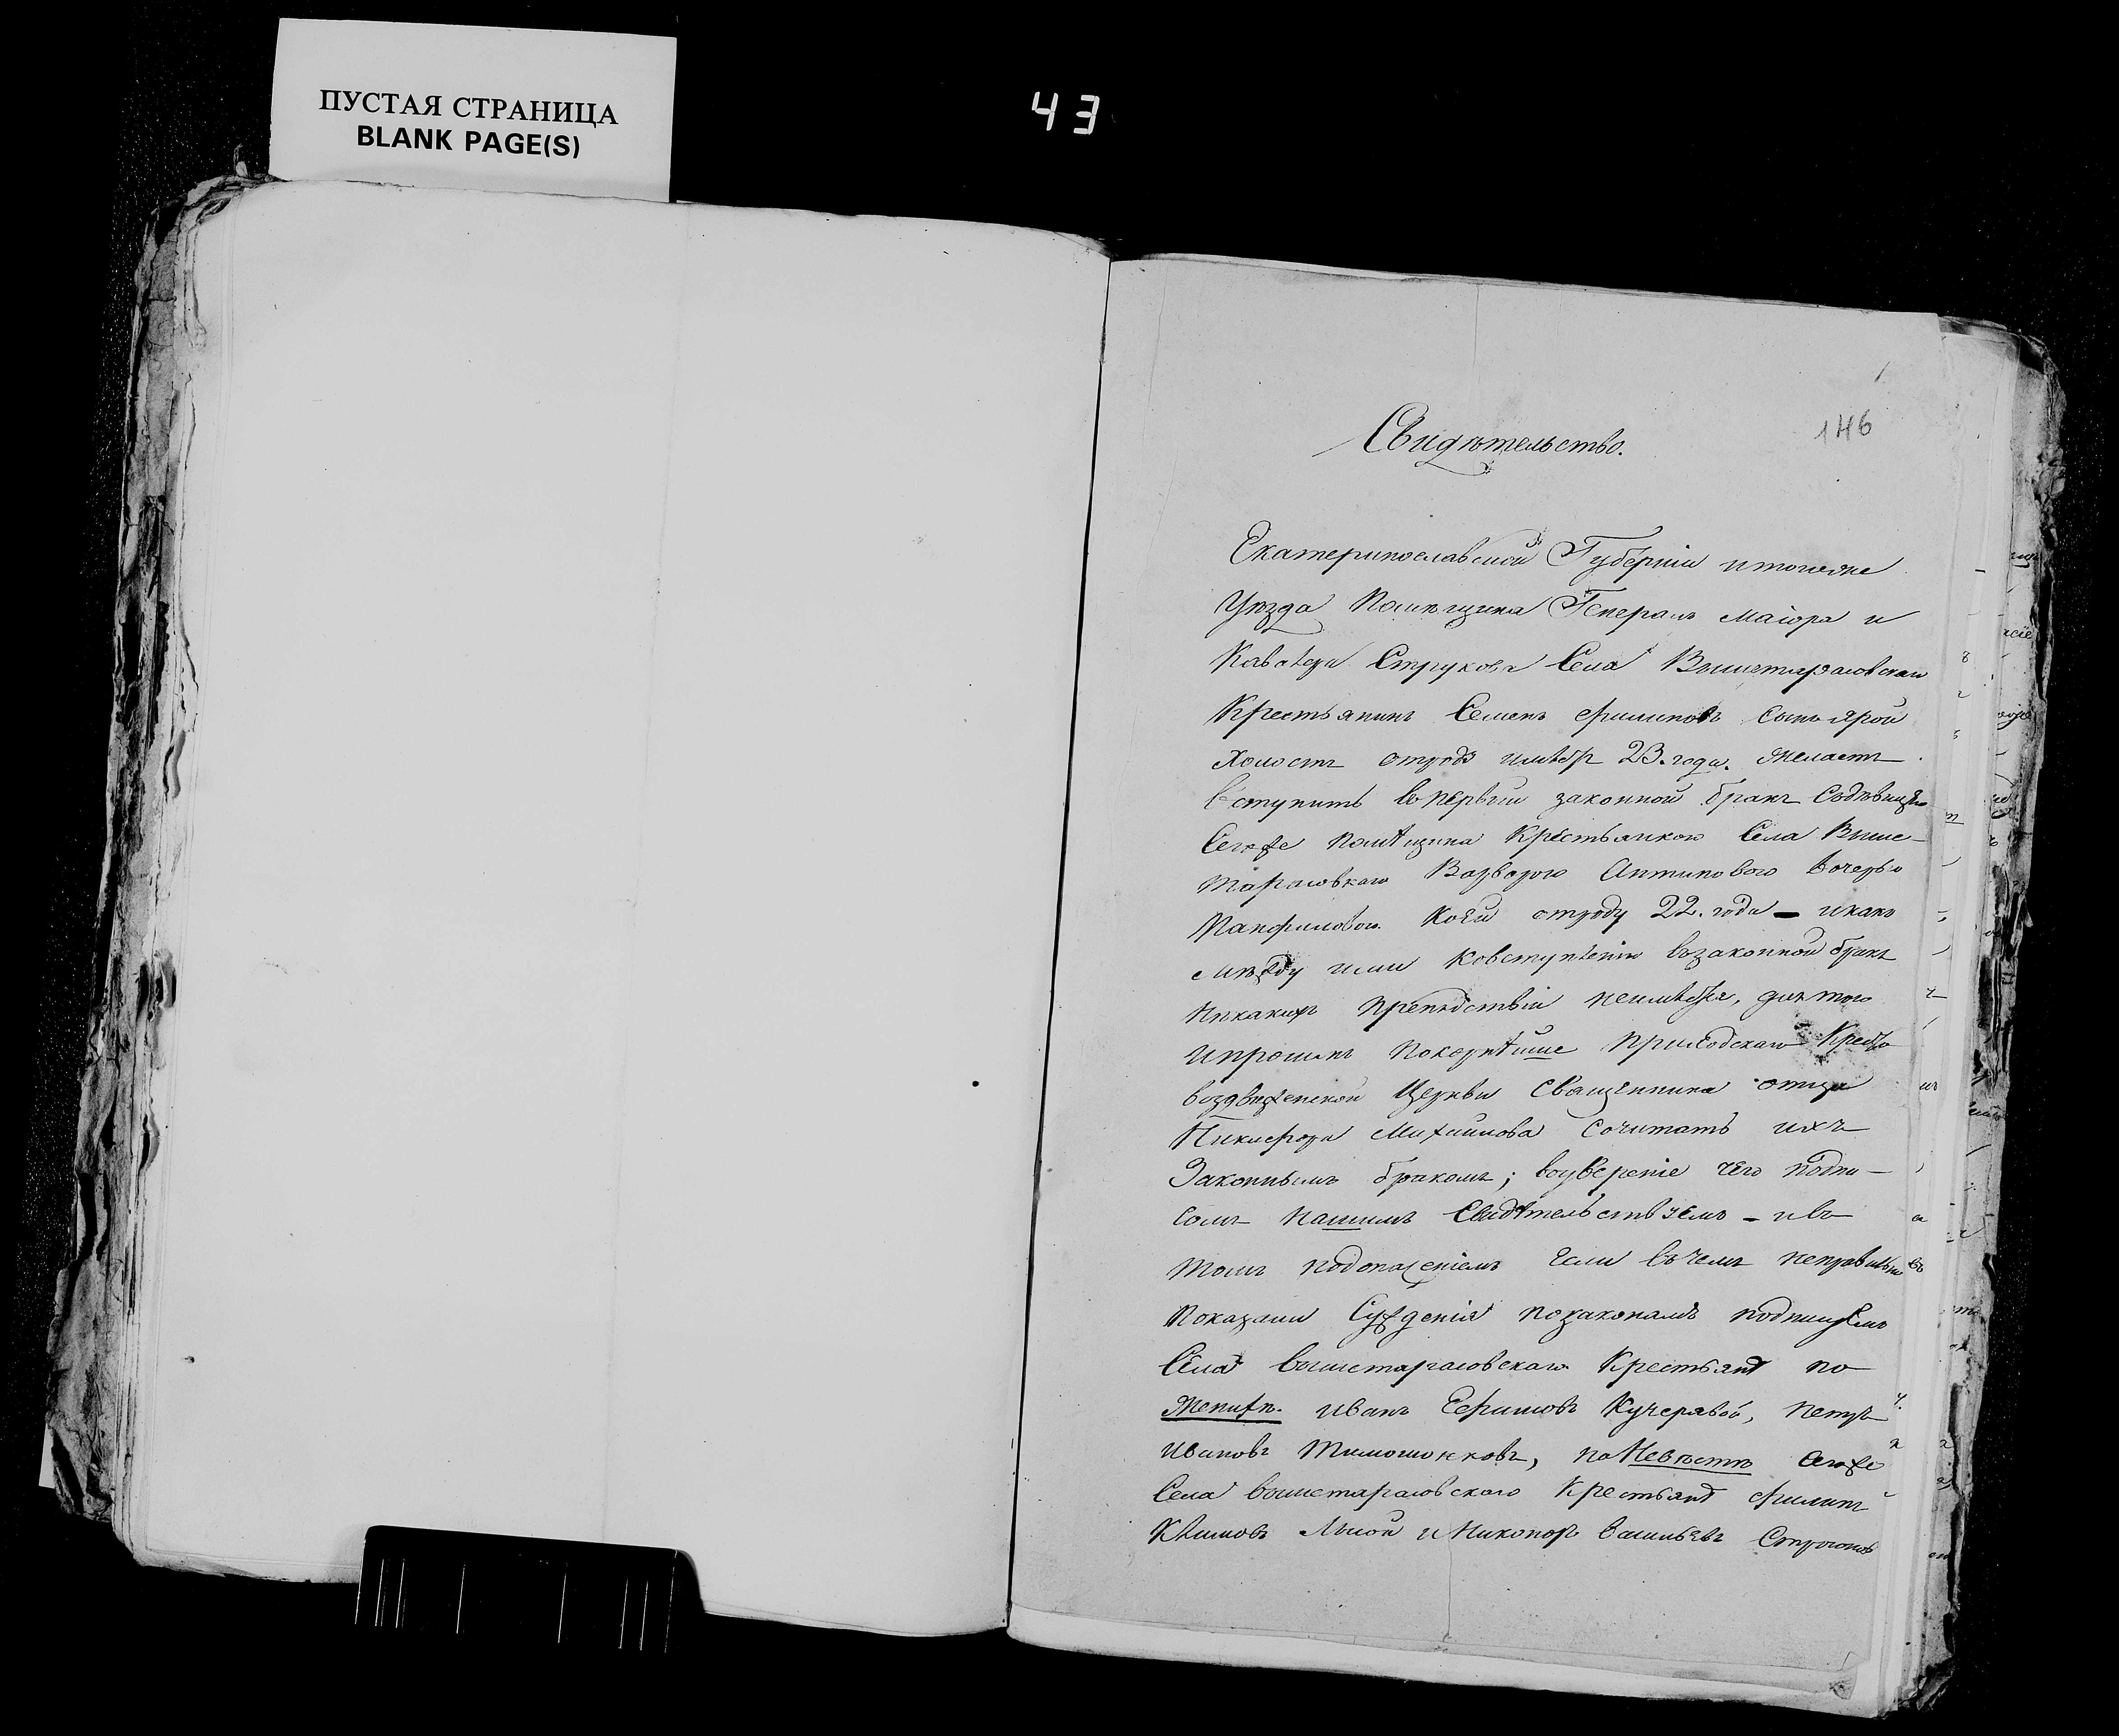 ПУСТАЯ СТРАНИЦА
BLANK PAGE(S)
43
146
Свидѣтельство.
Екатеринославской Губерніи итогоже
Уѣзда Помѣщика Генералъ Маіора и
Кавалера Струкова Села Вышетарасовскаго
Крестьянинъ Семенъ Филиповъ сынъ Ярой
холостъ отроду имѣетъ 23. года. желаетъ
вступить въпервый законной бракъ съдѣвицею
Сегоже помѣщика Крестьянкою Села Выше-
тарасовскаго Варварою Антиповою дочерью
Панфиловою коей отроду 22. года - икакъ
между ими ковступленію възаконной бракъ
никакихъ препядствій неимѣется, для того
ипросимъ покорнѣйше приходскаго Кресто
воздвиженской Церкви Священника отца
Никифора Михайлова сочитать ихъ
Законнымъ бракомъ; воувереніе чего подпи-
сомъ нашимъ Свидѣтельствуемъ - ивъ
томъ подопасеніемъ если въчемъ неправильно
показали Сужденія позаконамъ подпишемъ
Села вышетарасовскаго Крестьянѣ по
Женихѣ. Иванъ Ефимовъ Кучерявой, Петръ
Ивановъ Тимошонковъ, поНевѣстѣ Сегоже
Села вышетарасовскаго Крестьянѣ Филипъ
Климовъ Лысой и Никоноръ Васильевъ